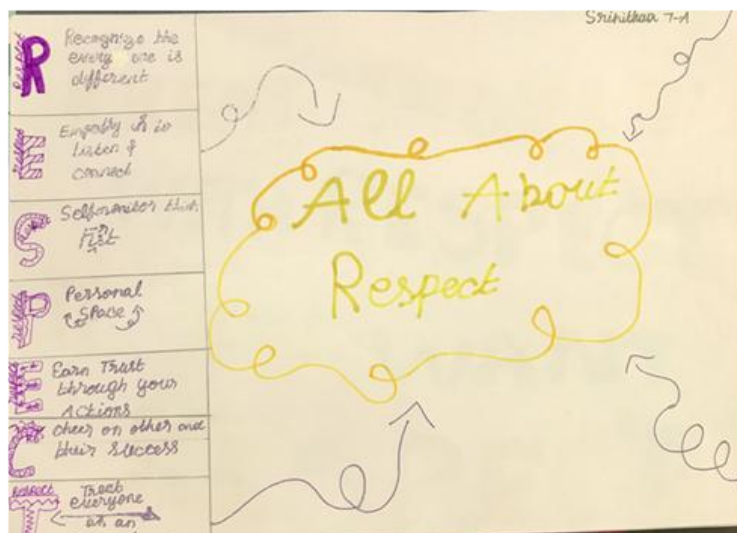 Srinithaa 7-A
R Recognize the
every one is
different
E Empathy is to
listen &
connect
S Self monitor think
First
P Personal
space
E Earn Trust
through your
Actions
C cheer on other and
their success
T Treat
everyone
as an
All About
Respect